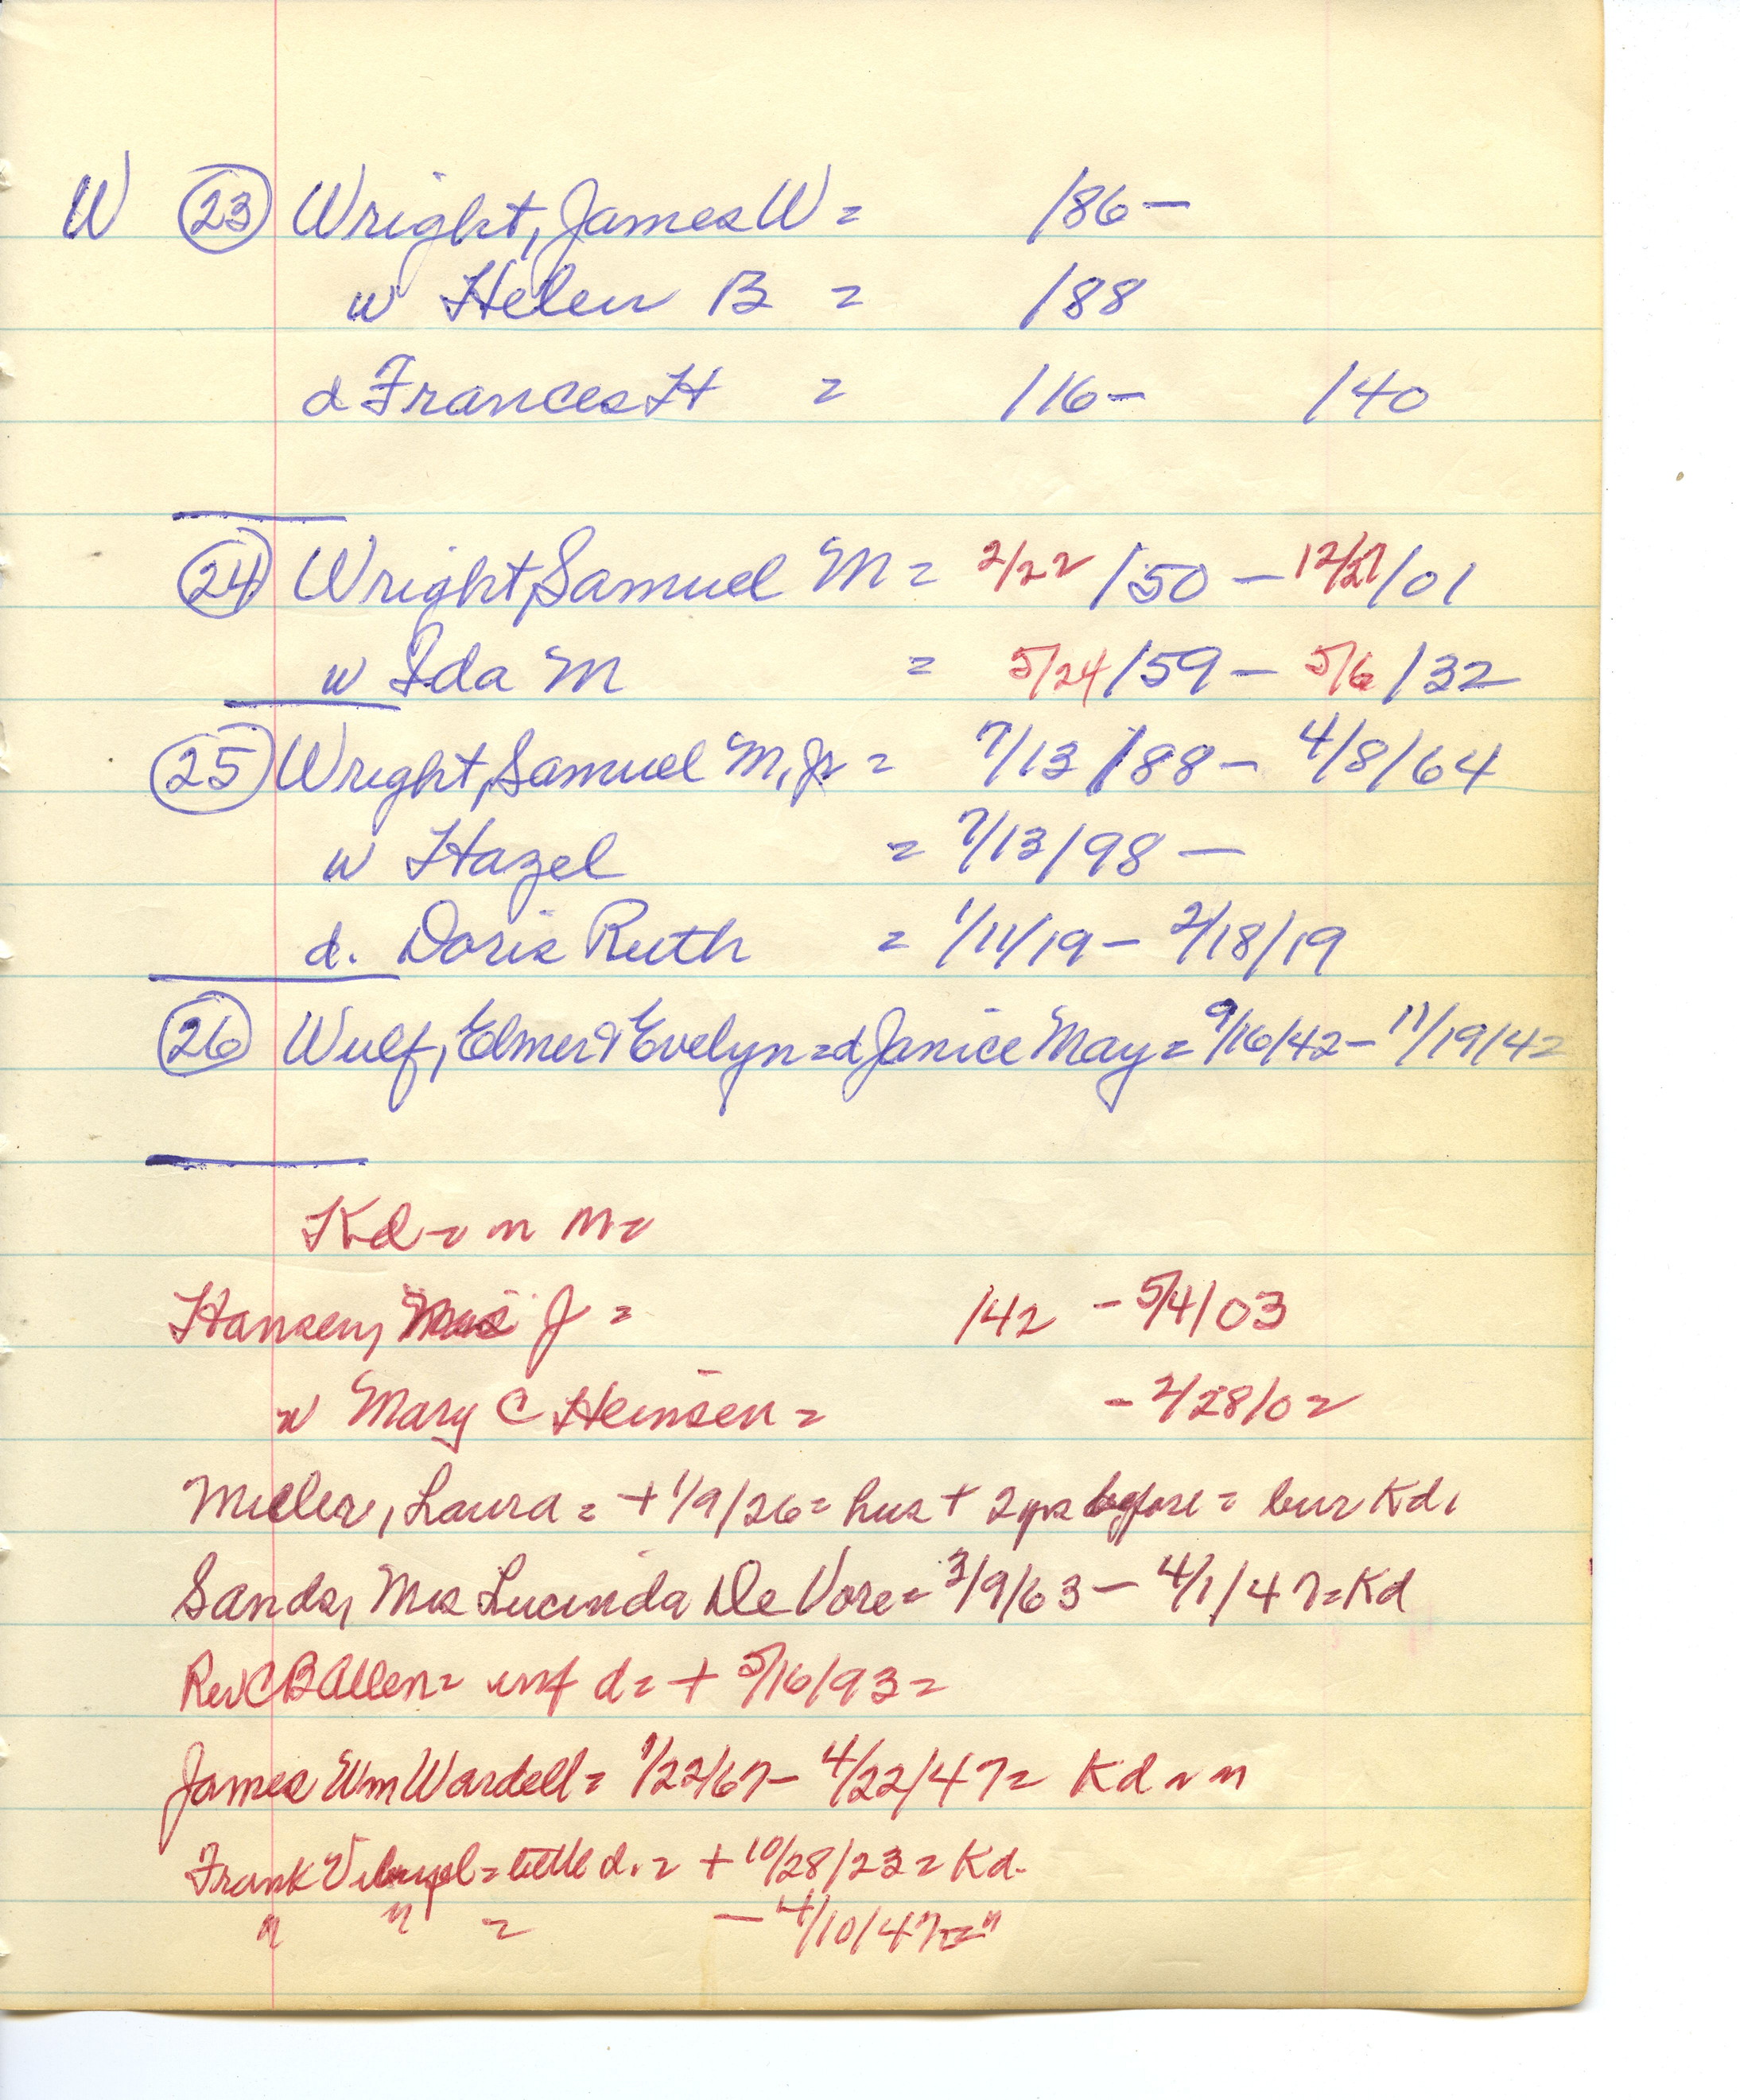 W (23) Wright, James W = /86 —
w Helen B = /88
d Frances H = /16 — /40
(24) Wright, Samuel M = 2/22/50 — 12/27/01
w Ida M = 5/24/59 — 5/6/32
(25) Wright, Samuel M, Jr = 7/13/88 — 4/8/64
w Hazel = 7/13/98 —
d. Doris Ruth = 1/11/19 — 2/18/19
(26) Wulf, Elmer & Evelyn = d Janice May = 9/16/42 — 11/19/42
Kd = n M =
Hansen, J = /42 — 5/4/03
w Mary C Heinsen = — 2/28/02
Miller, Laura = + 1/9/26 = hus + 2 yrs before = bur Kd.
Sands, Mrs Lucinda De Vore = 3/9/63 — 4/1/47 = Kd
Rev C B Allen = inf d = + 5/16/93 =
James Wm Wardell = 1/22/67 — 4/22/47 = Kd = n
Frank = little d. = + 10/28/23 = Kd.
" " = — 4/10/47 = "